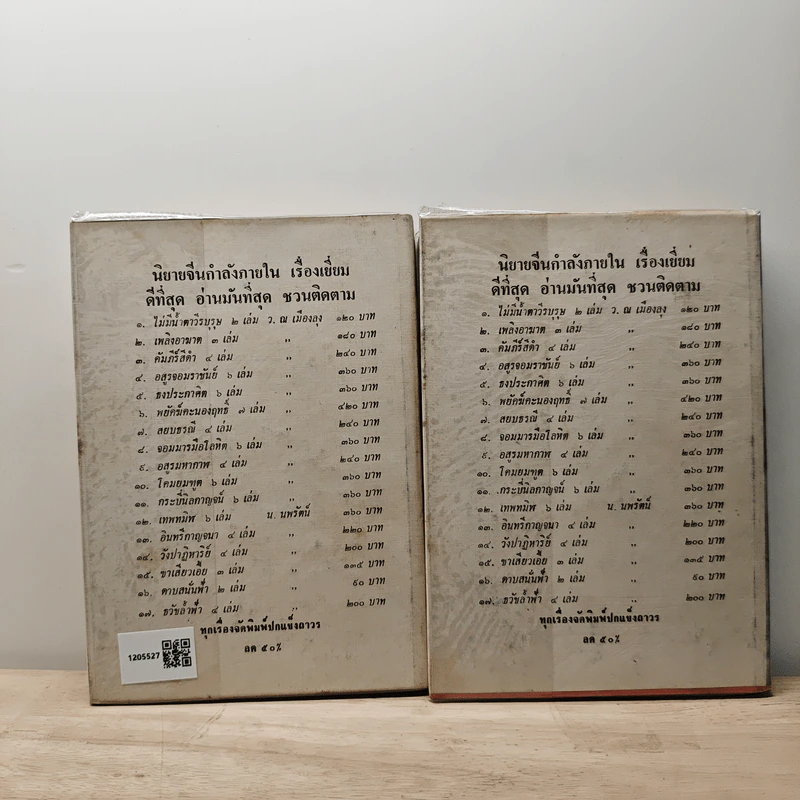 นิยายจีนกำลังภายใน เรื่องเยี่ยม
ดีที่สุด อ่านมันที่สุด ชวนติดตาม
๑. ไม่มีน้ำตาวีรบุรุษ ๒ เล่ม ว. ณ เมืองลุง ๑๒๐ บาท
๒. เพลิงอาฆาต ๓ เล่ม ,, ๑๘๐ บาท
๓. คัมภีร์สีดำ ๔ เล่ม ,, ๒๔๐ บาท
๔. อสูรจอมราชันย์ ๖ เล่ม ,, ๓๖๐ บาท
๕. ธงประกาศิต ๖ เล่ม ,, ๓๖๐ บาท
๖. พยัคฆ์คะนองฤทธิ์ ๗ เล่ม ,, ๔๒๐ บาท
๗. สยบธรณี ๔ เล่ม ,, ๒๔๐ บาท
๘. จอมมารมือโลหิต ๖ เล่ม ,, ๓๖๐ บาท
๙. อสูรมหากาฬ ๔ เล่ม ,, ๒๔๐ บาท
๑๐. โคมยมฑูต ๖ เล่ม ,, ๓๖๐ บาท
๑๑. กระบี่นิลกาญจน์ ๖ เล่ม ,, ๓๖๐ บาท
๑๒. เทพทมิฬ ๖ เล่ม น. นพรัตน์ ๓๖๐ บาท
๑๓. อินทรีกาญจนา ๔ เล่ม ,, ๒๒๐ บาท
๑๔. วังปาฏิหาริย์ ๔ เล่ม ,, ๒๐๐ บาท
๑๕. ขาเสียวเอี้ย ๓ เล่ม ,, ๑๓๕ บาท
๑๖. ดาบสนั่นฟ้า ๒ เล่ม ,, ๙๐ บาท
๑๗. ธวัชล้ำฟ้า ๔ เล่ม ,, ๒๐๐ บาท
ทุกเรื่องจัดพิมพ์ปกแข็งถาวร
ลด ๕๐%
1205527
นิยายจีนกำลังภายใน เรื่องเยี่ยม
ดีที่สุด อ่านมันที่สุด ชวนติดตาม
๑. ไม่มีน้ำตาวีรบุรุษ ๒ เล่ม ว. ณ เมืองลุง ๑๒๐ บาท
๒. เพลิงอาฆาต ๓ เล่ม ,, ๑๘๐ บาท
๓. คัมภีร์สีดำ ๔ เล่ม ,, ๒๔๐ บาท
๔. อสูรจอมราชันย์ ๖ เล่ม ,, ๓๖๐ บาท
๕. ธงประกาศิต ๖ เล่ม ,, ๓๖๐ บาท
๖. พยัคฆ์คะนองฤทธิ์ ๗ เล่ม ,, ๔๒๐ บาท
๗. สยบธรณี ๔ เล่ม ,, ๒๔๐ บาท
๘. จอมมารมือโลหิต ๖ เล่ม ,, ๓๖๐ บาท
๙. อสูรมหากาฬ ๔ เล่ม ,, ๒๔๐ บาท
๑๐. โคมยมฑูต ๖ เล่ม ,, ๓๖๐ บาท
๑๑. กระบี่นิลกาญจน์ ๖ เล่ม ,, ๓๖๐ บาท
๑๒. เทพทมิฬ ๖ เล่ม น. นพรัตน์ ๓๖๐ บาท
๑๓. อินทรีกาญจนา ๔ เล่ม ,, ๒๒๐ บาท
๑๔. วังปาฏิหาริย์ ๔ เล่ม ,, ๒๐๐ บาท
๑๕. ขาเสียวเอี้ย ๓ เล่ม ,, ๑๓๕ บาท
๑๖. ดาบสนั่นฟ้า ๒ เล่ม ,, ๙๐ บาท
๑๗. ธวัชล้ำฟ้า ๔ เล่ม ,, ๒๐๐ บาท
ทุกเรื่องจัดพิมพ์ปกแข็งถาวร
ลด ๕๐%